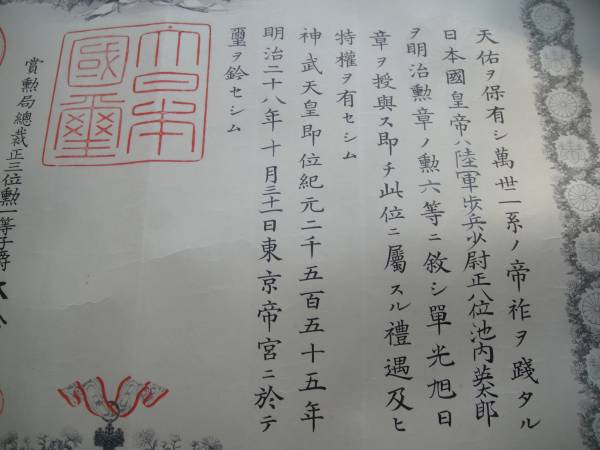 天佑ヲ保有シ萬世一系ノ帝祚ヲ踐タル
日本國皇帝ハ陸軍歩兵少尉正八位池内英太郎
ヲ明治勲章ノ勲六等ニ敘シ單光旭日
章ヲ授與ス即チ此位ニ屬スル禮遇及ヒ
特權ヲ有セシム
神武天皇即位紀元二千五百五十五年
明治二十八年十月三十一日東京帝宮ニ於テ
璽ヲ鈐セシム
大日本國璽
賞勲局總裁正三位勲一等子爵